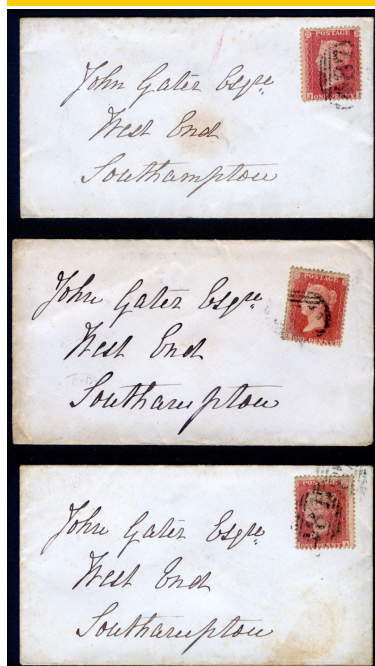 POSTAGE
John Gater Esqre
West End
Southampton
POSTAGE
ONE PENNY
John Gater Esqre
West End
Southampton
POSTAGE
John Gater Esqre
West End
Southampton